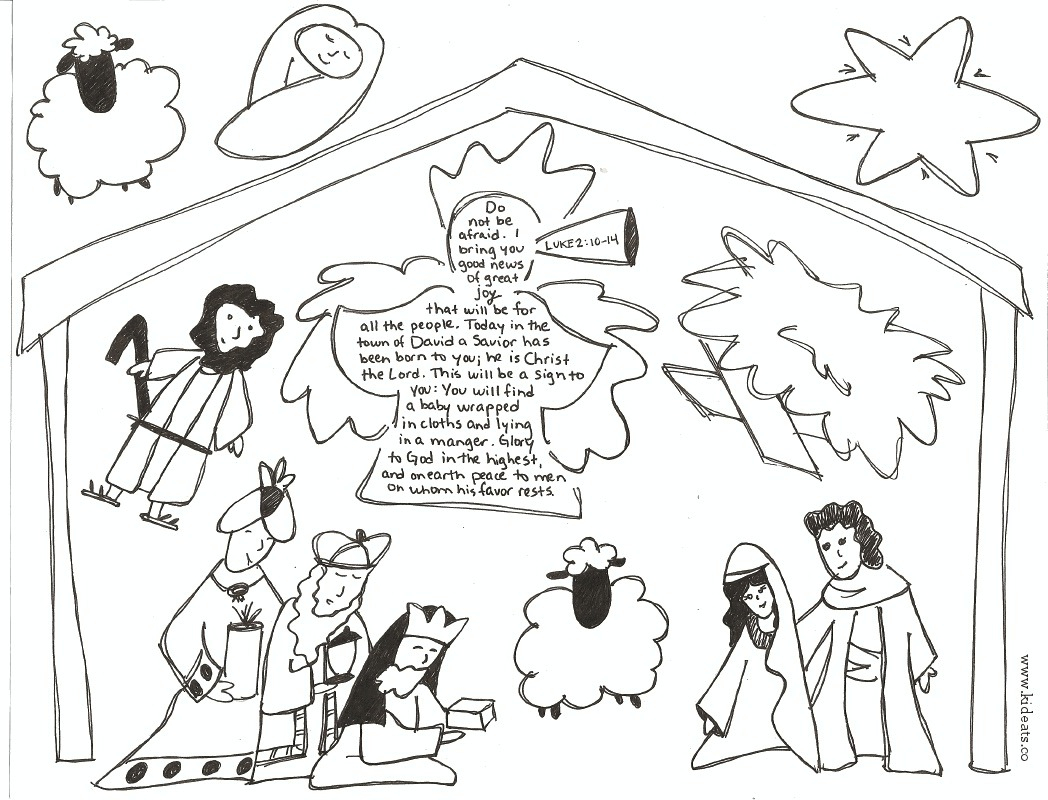 Do
not be
afraid. I
bring you
good news
of great
joy
that will be for
all the people. Today in the
town of David a Savior has
been born to you; he is Christ
the Lord. This will be a sign to
you: You will find
a baby wrapped
in cloths and lying
in a manger. Glory
to God in the highest,
and on earth peace to men
on whom his favor rests.
LUKE 2:10-14
www.kideats.co